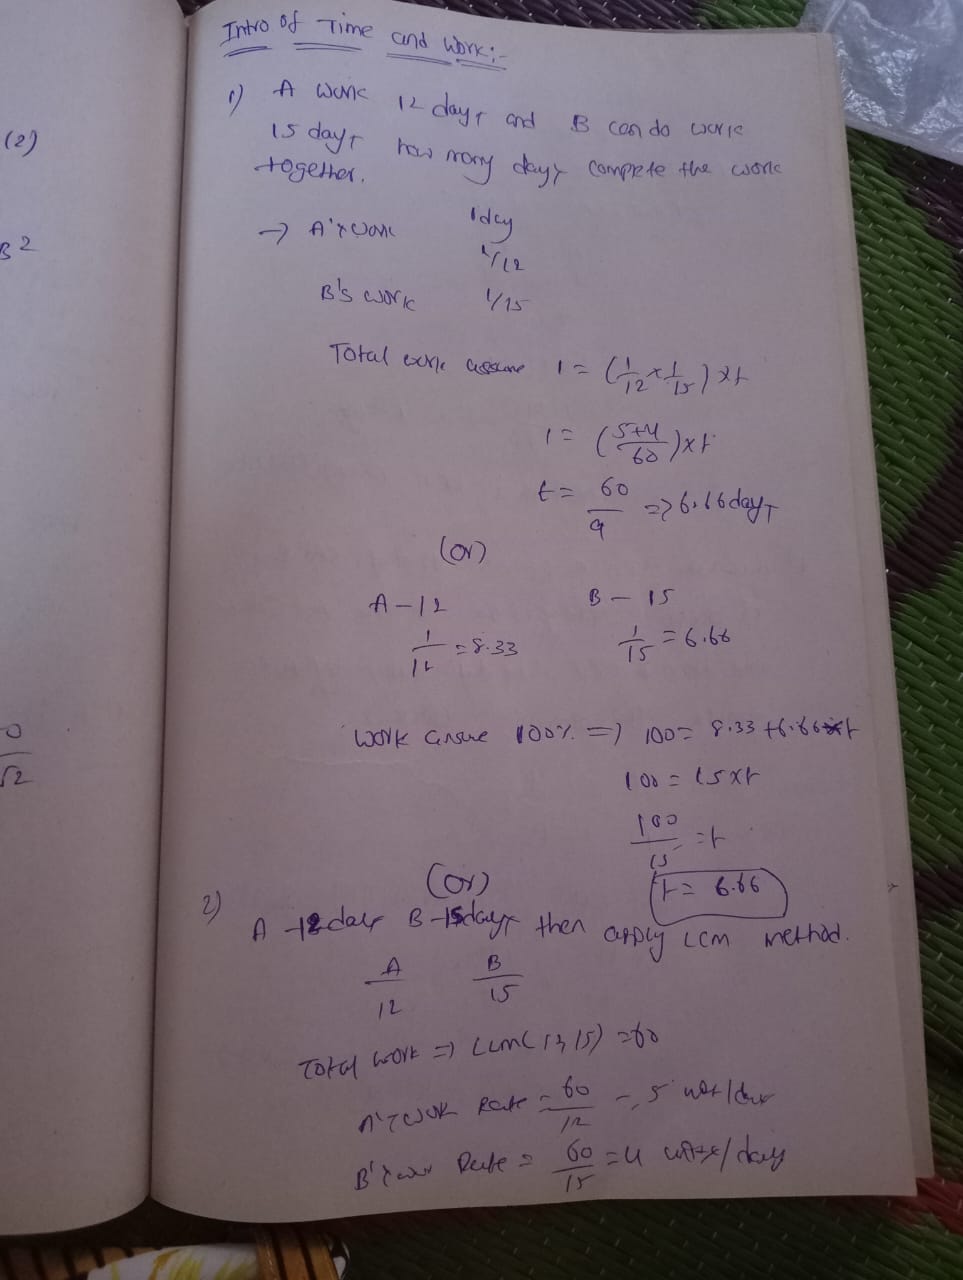 (2)
B2
0
√2
Intro of Time and Work:-
1) A work 12 days and B can do work
15 days how many days complete the work
together.
→ A's work 1day
1/12
B's work 1/15
Total work assume 1 = (1/12 x 1/15) xt
1 = (5+4/60) xt
t = 60/9 => 6.66 days
(or)
A - 12 B - 15
1/12 = 8.33 1/15 = 6.66
Work assume 100% => 100 = 8.33 + 6.66 xt
100 = 15 xt
100/15 = t
t = 6.66
(or)
2) A - 12 days B - 15 days then apply LCM method.
A/12 B/15
Total work => LCM(12, 15) = 60
A's work Rate = 60/12 = 5 /day
B's work Rate = 60/15 = 4 /day